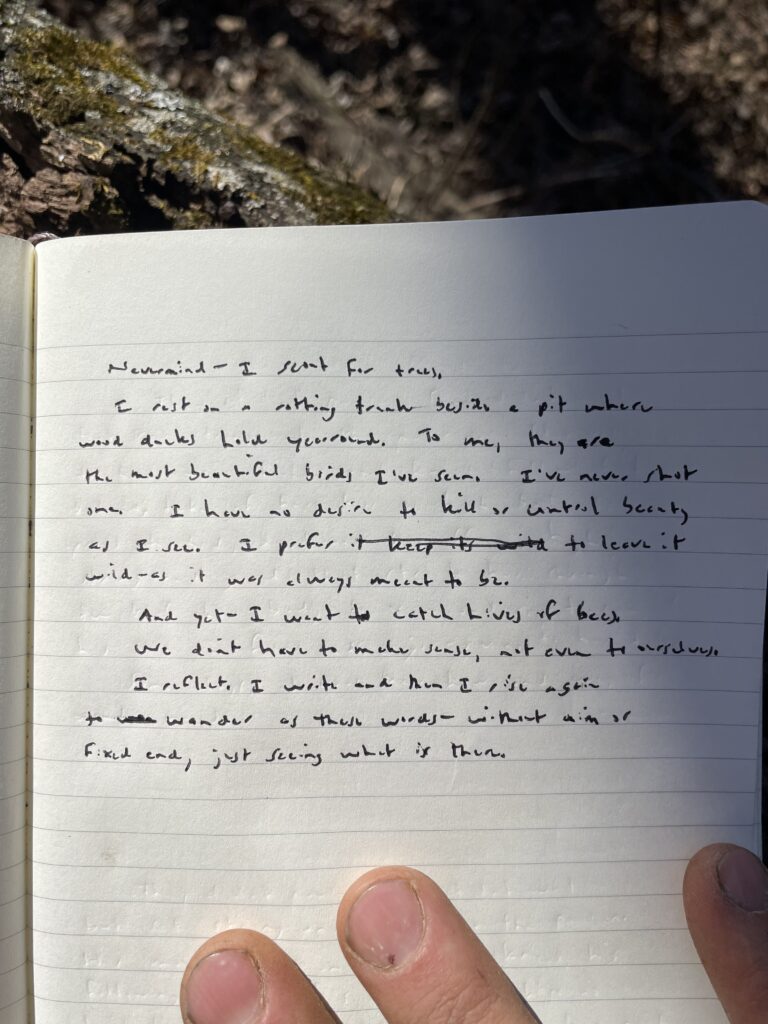 Nevermind - I scout for trees.
I rest on a rotting trunk beside a pit where
wood ducks hold yearround. To me, they are
the most beautiful birds I've seen. I've never shot
one. I have no desire to kill or control beauty
as I see. I prefer it keep its wild to leave it
wild-as it was always meant to be.
And yet - I want to catch hives of bees.
We don't have to make sense, not even to ourselves.
I reflect. I write and then I rise again
to wander as these words - without aim or
fixed end, just seeing what is there.